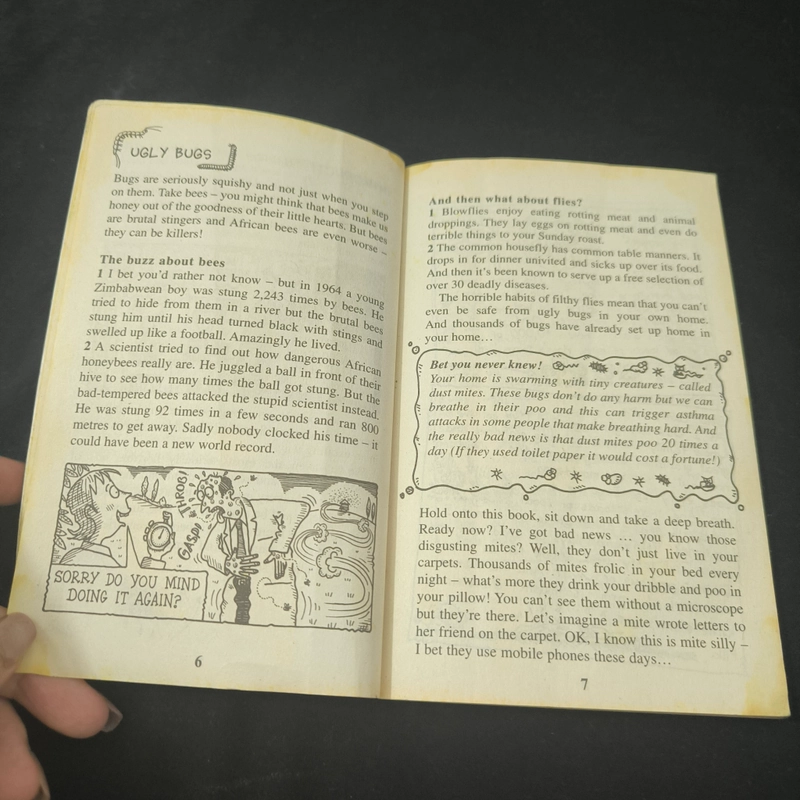 UGLY BUGS
Bugs are seriously squishy and not just when you step
on them. Take bees – you might think that bees make us
honey out of the goodness of their little hearts. But bees
are brutal stingers and African bees are even worse –
they can be killers!
The buzz about bees
1 I bet you'd rather not know – but in 1964 a young
Zimbabwean boy was stung 2,243 times by bees. He
tried to hide from them in a river but the brutal bees
stung him until his head turned black with stings and
swelled up like a football. Amazingly he lived.
2 A scientist tried to find out how dangerous African
honeybees really are. He juggled a ball in front of their
hive to see how many times the ball got stung. But the
bad-tempered bees attacked the stupid scientist instead.
He was stung 92 times in a few seconds and ran 800
metres to get away. Sadly nobody clocked his time – it
could have been a new world record.
THROB!
GASP!
SORRY DO YOU MIND
DOING IT AGAIN?
6
And then what about flies?
1 Blowflies enjoy eating rotting meat and animal
droppings. They lay eggs on rotting meat and even do
terrible things to your Sunday roast.
2 The common housefly has common table manners. It
drops in for dinner univited and sicks up over its food.
And then it's been known to serve up a free selection of
over 30 deadly diseases.
The horrible habits of filthy flies mean that you can't
even be safe from ugly bugs in your own home.
And thousands of bugs have already set up home in
your home…
Bet you never knew!
Your home is swarming with tiny creatures – called
dust mites. These bugs don't do any harm but we can
breathe in their poo and this can trigger asthma
attacks in some people that make breathing hard. And
the really bad news is that dust mites poo 20 times a
day (If they used toilet paper it would cost a fortune!)
Hold onto this book, sit down and take a deep breath.
Ready now? I've got bad news … you know those
disgusting mites? Well, they don't just live in your
carpets. Thousands of mites frolic in your bed every
night – what's more they drink your dribble and poo in
your pillow! You can't see them without a microscope
but they're there. Let's imagine a mite wrote letters to
her friend on the carpet. OK, I know this is mite silly –
I bet they use mobile phones these days…
7